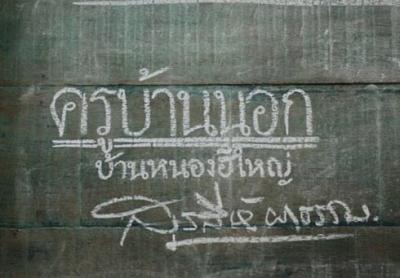 ครูบ้านนอก
บ้านหนองฮีใหญ่
สุรสีห์ ผาธรรม.